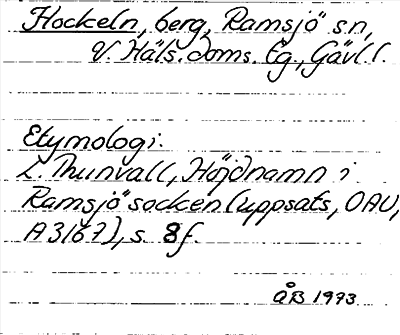 Flockeln, berg, Ramsjö sn,
V. Häls. doms. tg., Gävl. l.
Etymologi:
L. Thunvall, Höjdnamn i
Ramsjö socken (uppsats, OAU,
A3167), s. 8f.
ÅB 1973